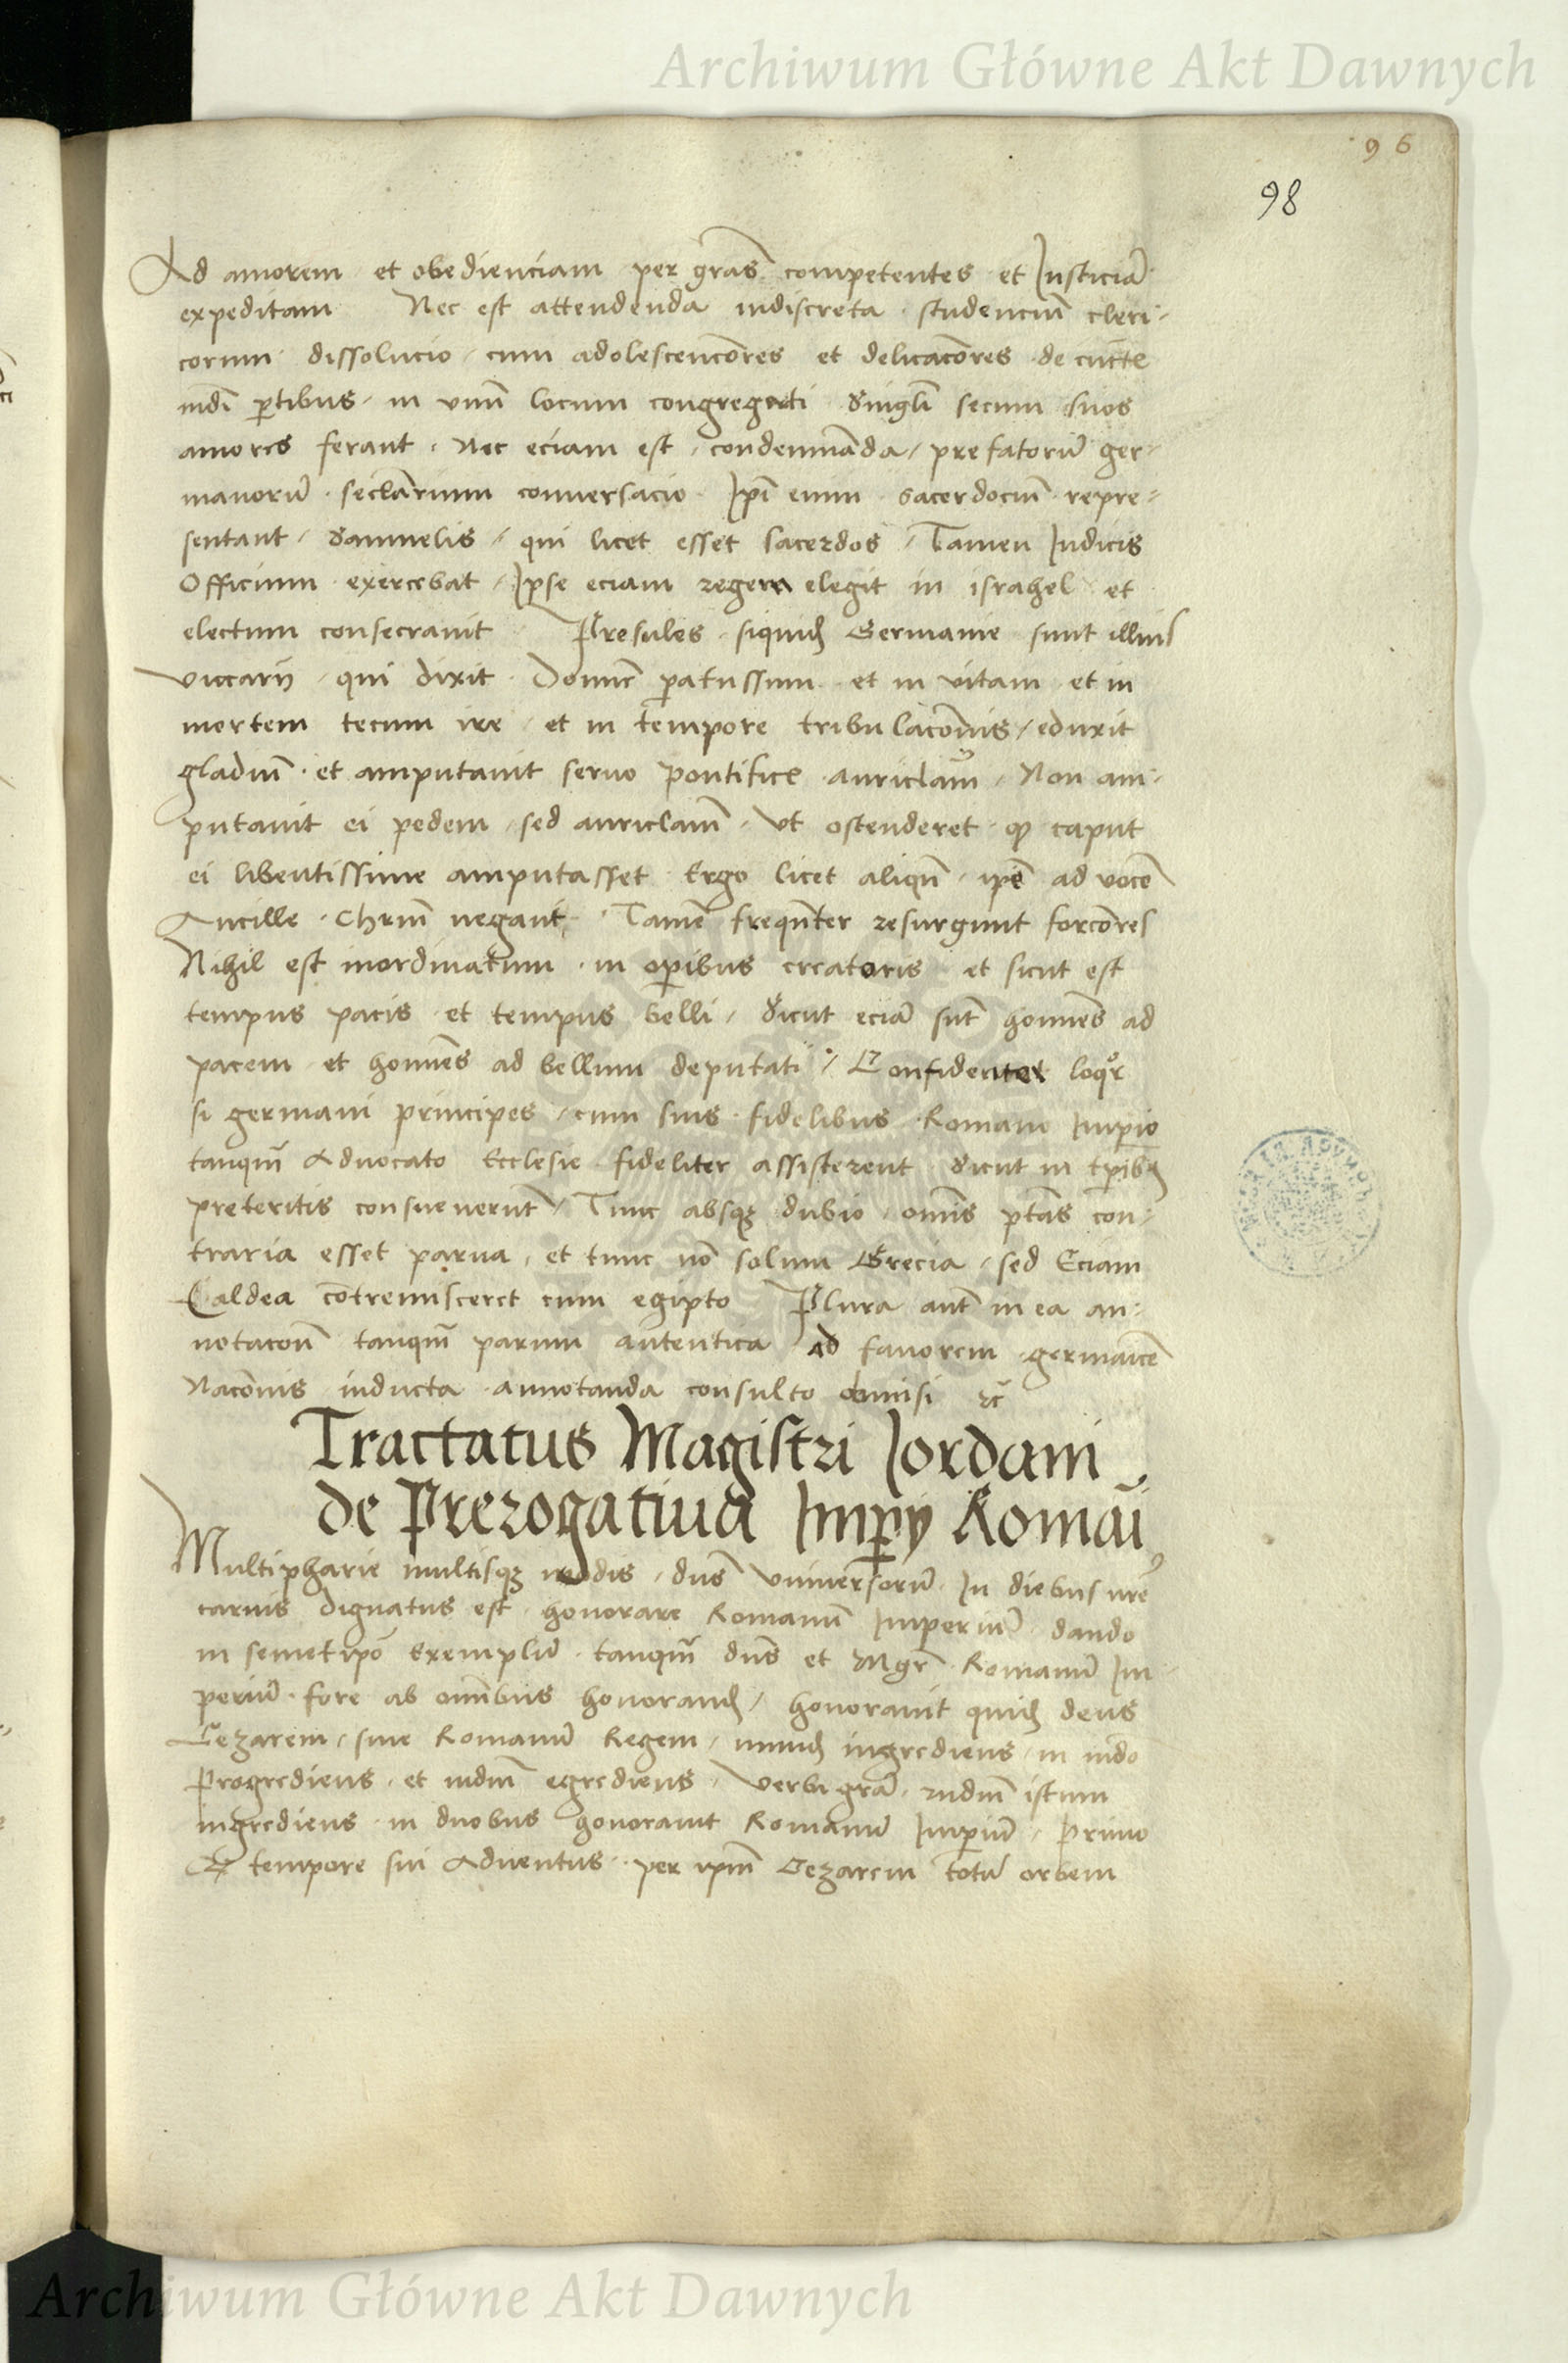 Archiwum Główne Akt Dawnych
96
98
Ad amorem et obedienciam per gras̄ competentes et Iusticiā
expeditam Nec est attendenda indiscreta studenciū cleri-
corum dissolucio cum adolescenc̄ores et delicac̄ores de
mdi p̄tibus in vnū locum congregati singl̄i secum suos
amores ferant. Nec eciam est condemnāda prefatorū ger-
manorū secl̄arium conuersacio Ip̄i enim sacerdociū repre-
sentant Samuelis qui licet esset sacerdos Tamen Iudicis
Officium exercebat Ipse eciam regem elegit in israhel et
electum consecrauit Presules siquid Germanie sunt illius
viccarij qui dixit Domīe paratus sum et in vitam et in
mortem tecum ire et in tempore tribulacōnis eduxit
gladiū et amputauit seruo pontifice auriclam Non am-
putauit ei pedem sed auriclam̄ vt ostenderet caput
ei libentissime amputasset Ergo licet aliqn̄ ip̄e ad vocē
Ancille Chrm̄ negant Tamē frequn̄ter resurgunt forc̄ores
Nihil est inordinatum in op̄ibus creatoris et sicut est
tempus pacis et tempus belli sicut eciā sūt homīes ad
pacem et homīes ad bellum deputati Confidenter loqr
si germani principes cum suis fidelibus Romano Imp̄io
tanqm̄ Aduocato Ecclesie fideliter assisterent Sicut in tp̄ibꝫ
preteritis consueuerūt Tunc absqꝫ dubio omīs ptās con-
traria esset parua et tunc nō solum Grecia sed Eciam
Caldea cōtremisceret cum egipto Plura aut̄ in ea an-
notacōn tanqm̄ parum autentica ad fauorem germaīce
Nacōnis inducta annotanda consulto obmisi ꝛc̄
Tractatus Magistri Iordani
de Prerogatiua Imp̄ij Romāi
Multipharie multisqꝫ modis dn̄s vniuersorū In diebus nrē
carnis dignatus est honorare Romanū Imperiū dando
in semetip̄o Exemplū tanqm̄ dn̄s et Mgr̄ Romanū Im-
periū fore ab omībus honorand honorauit quid deus
Cezarem siue Romanū Regem mundū ingrediens in mdo
Progrediens et mdm̄ egrediens Verbi grā mdm̄ istum
ingrediens in duobus honorauit Romanū Imp̄iū Primo
tempore sui Aduentus per ip̄m Cezarem totū orbem
Archiwum Główne Akt Dawnych